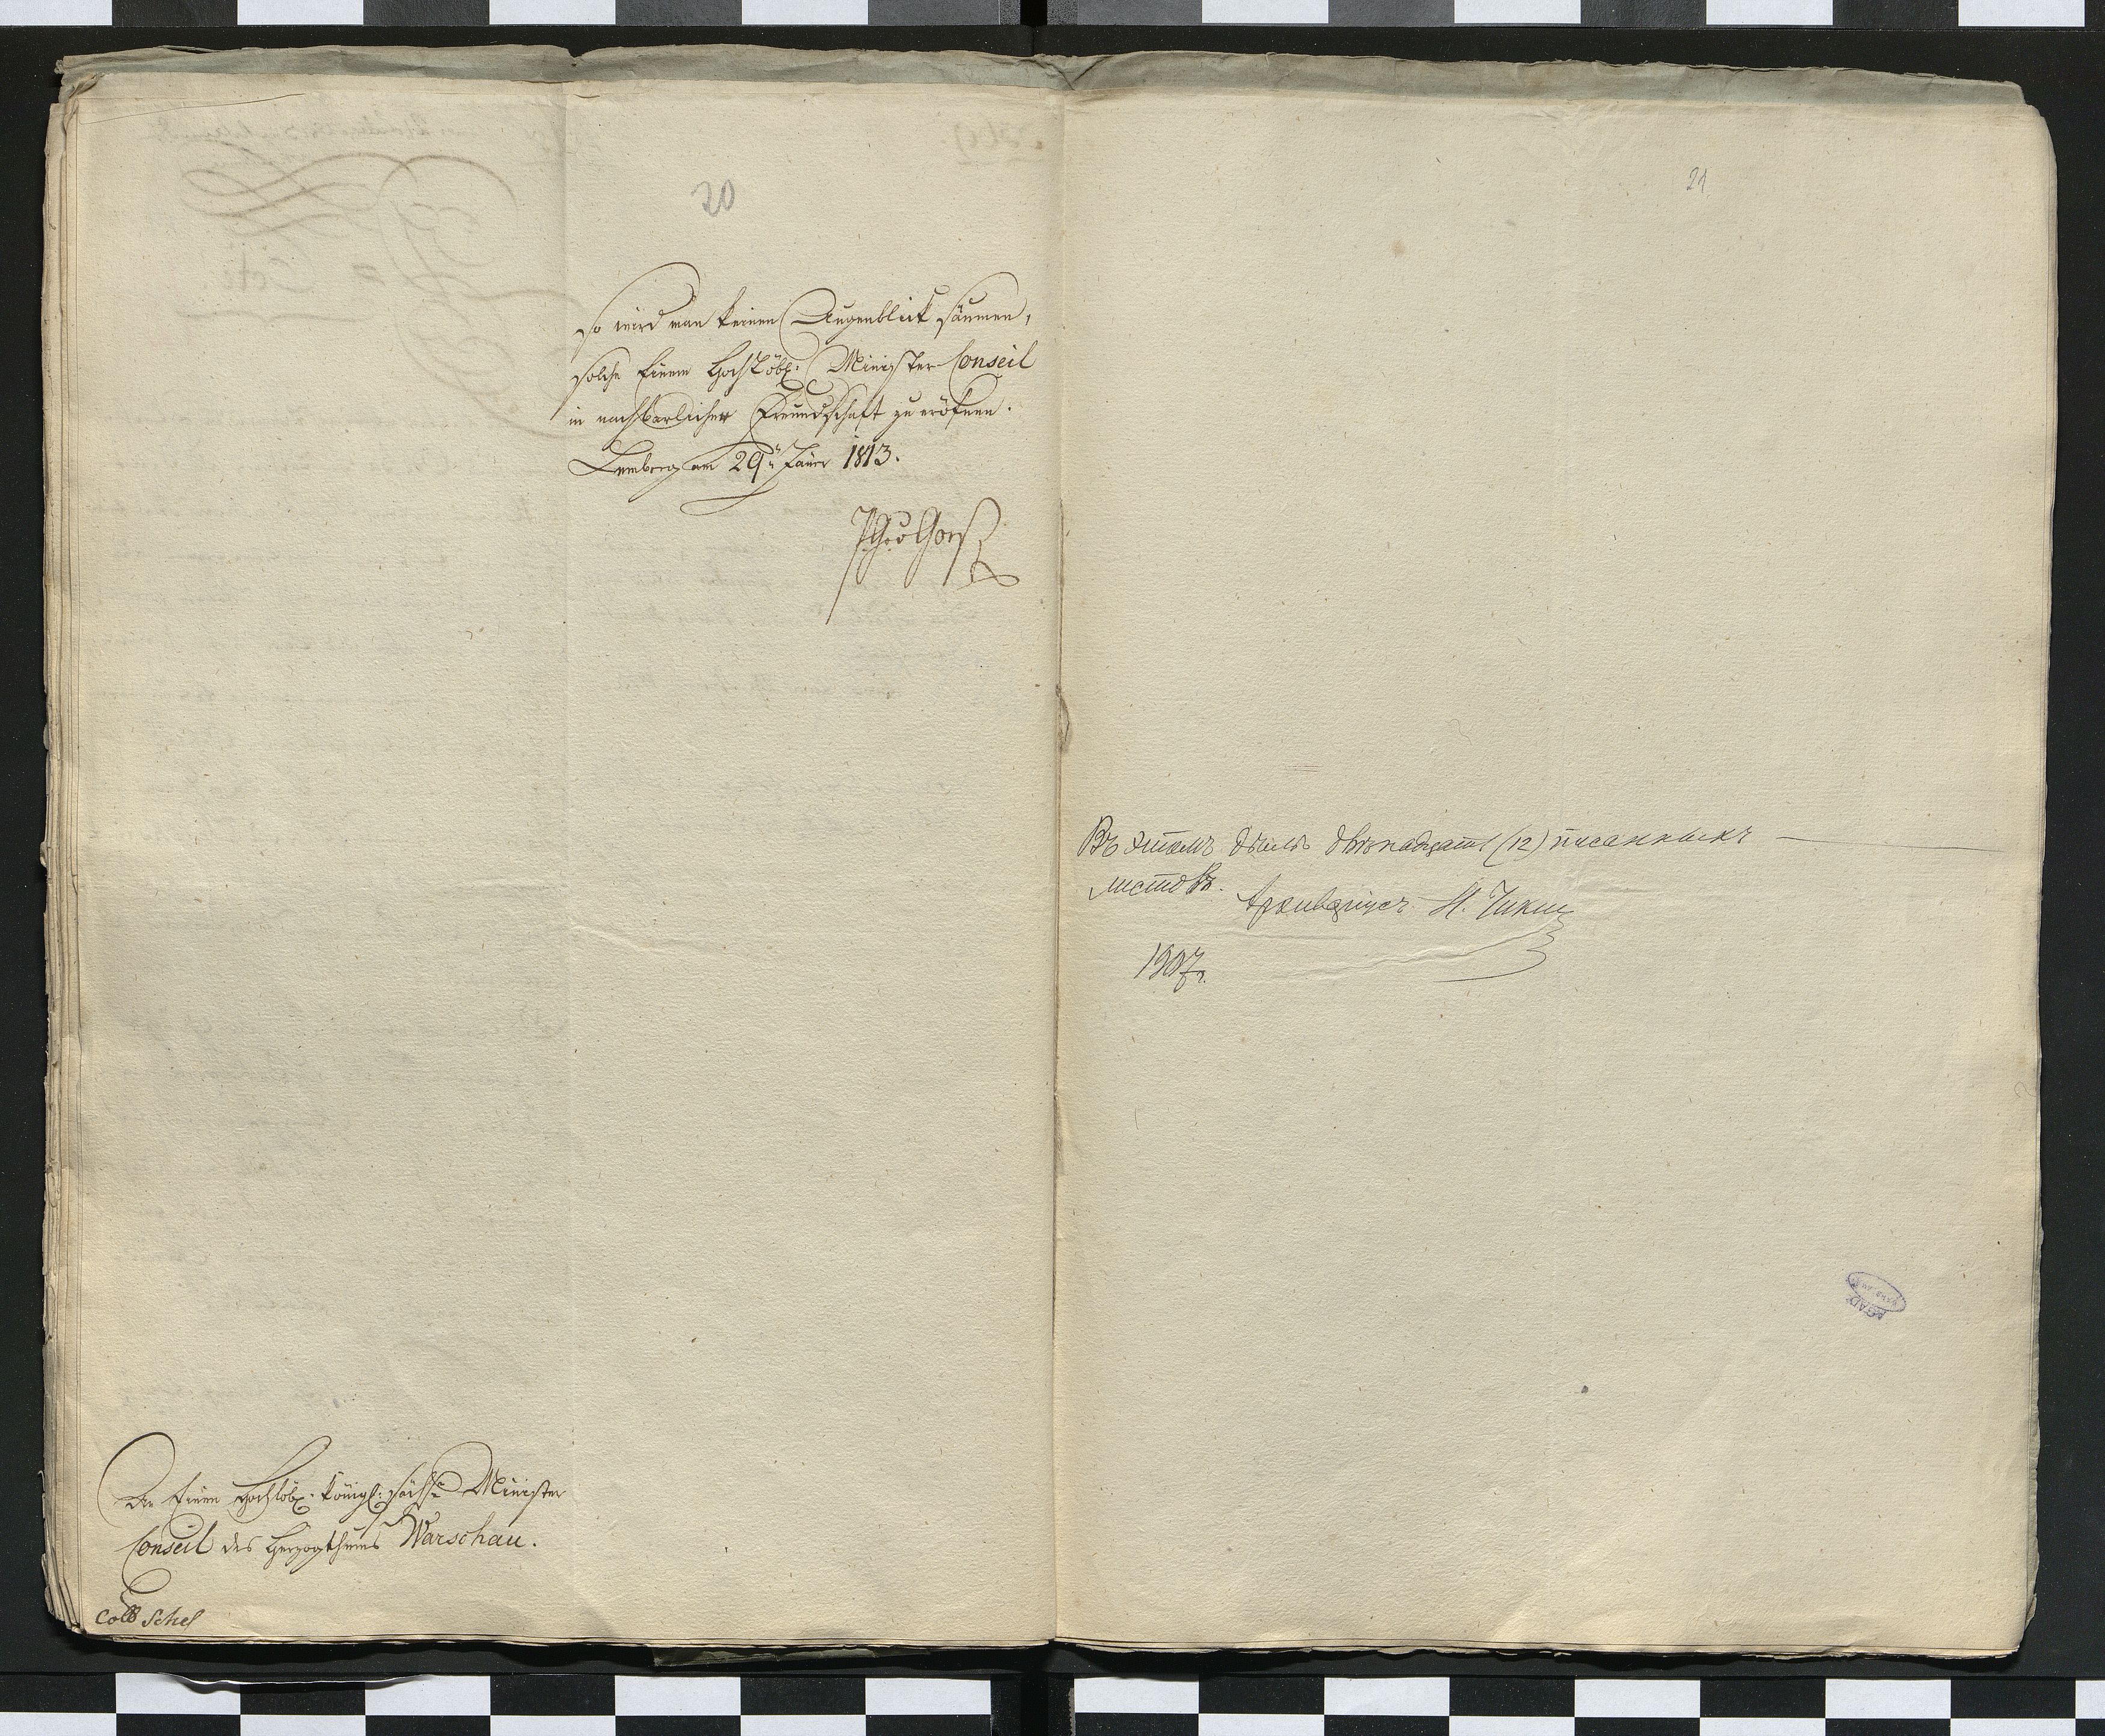 20
so wird man keinen Augenblick säumen,
solche Einem Hochlöbl. Minister Conseil
in nachbarlicher Freundschaft zu eröfnen.
Lemberg am 29n Jäner 1813.
An Einen Hochlöbl. königl: sächse Minister
Conseil des Herzogthums Warschau.
Coll Schel
21
Въ этомъ дѣлѣ двѣнадцать (12) писанныхъ
листовъ.
Архиваріусъ Н. Чикин
1907г.
AGAD